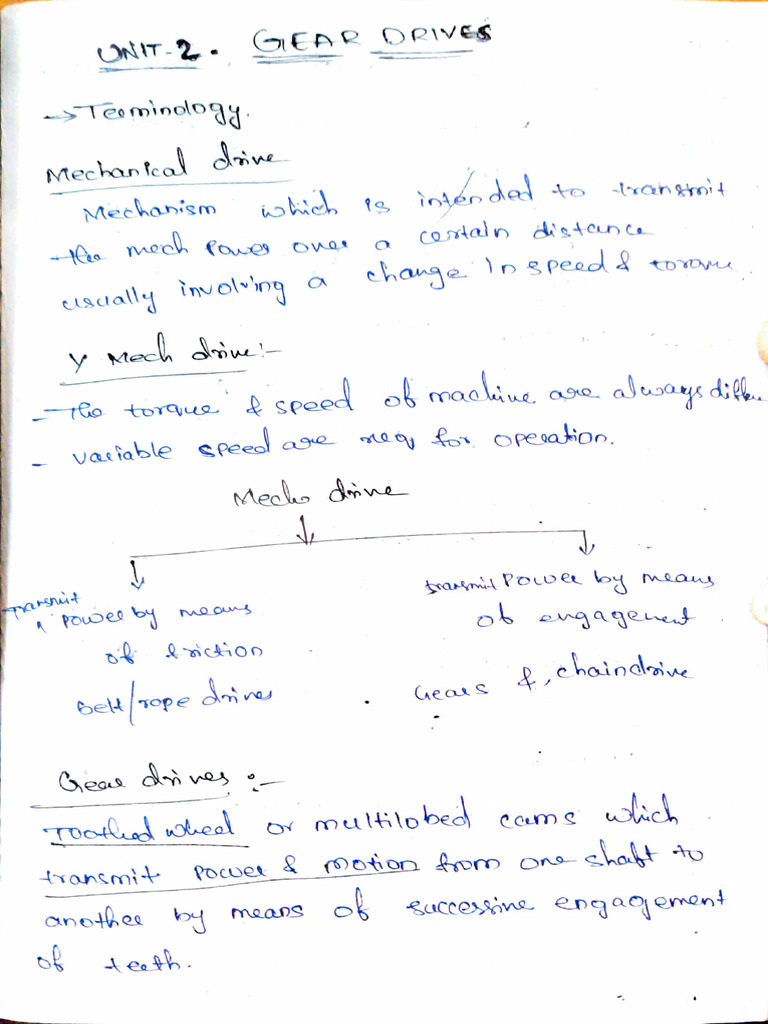 UNIT-2. GEAR DRIVES
→ Terminology.
Mechanical drive
Mechanism which is intended to transmit
the mech Power over a certain distance
usually involving a change in speed & torque.
Y Mech drive:-
- The torque & speed of machine are always diffe
- variable speed are req for operation.
Mech drive
transmit power by means
of friction
Belt/rope drives
transmit Power by means
of engagement
Gears &, chain drive
Gear drives :-
Toothed wheel or multilobed cams which
transmit power & motion from one shaft to
another by means of successive engagement
of teeth.